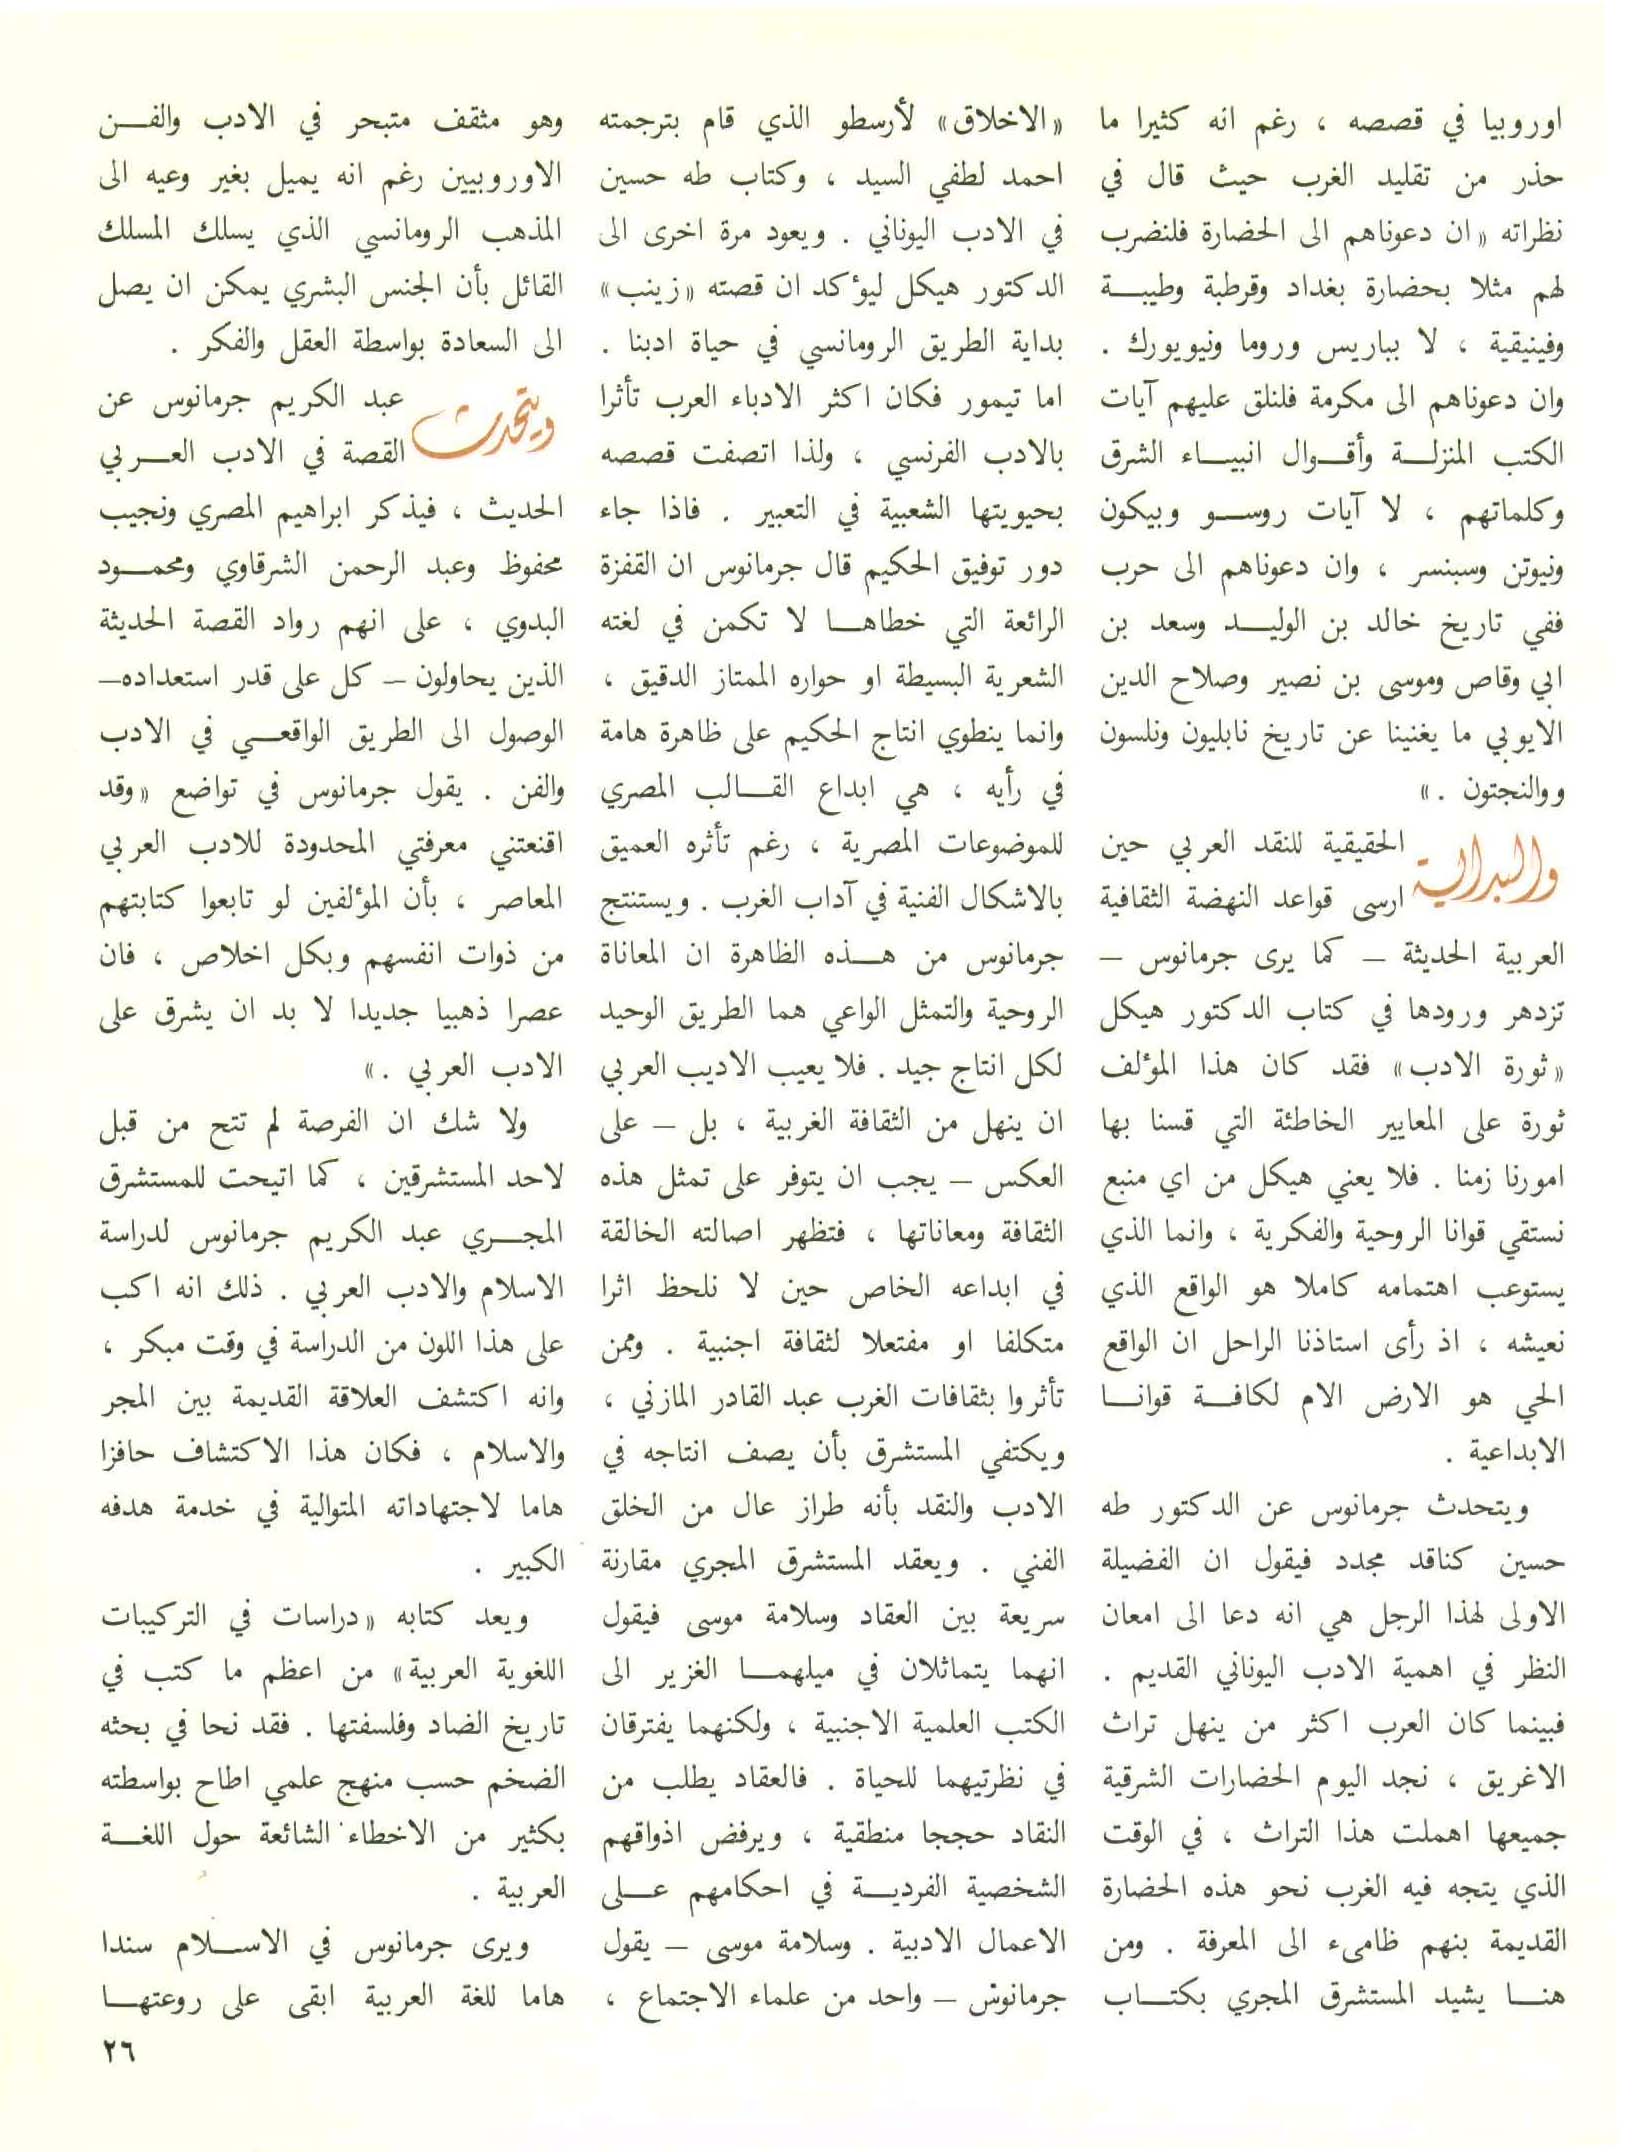 اوروبيا في قصصه ، رغم انه كثيرا ما
حذر من تقليد الغرب حيث قال في
نظراته « ان دعوناهم الى الحضارة فلنضرب
لهم مثلا بحضارة بغداد وقرطبة وطيبة
وفينيقية ، لا بباريس وروما ونيويورك .
وان دعوناهم الى مكرمة فلنلق عليهم آيات
الكتب المنزلة وأقوال انبياء الشرق
وكلماتهم ، لا آيات روسو وبيكون
ونيوتن وسبنسر ، وان دعوناهم الى حرب
ففي تاريخ خالد بن الوليد وسعد بن
ابي وقاص وموسى بن نصير وصلاح الدين
الايوبي ما يغنينا عن تاريخ نابليون ونلسون
ووالنجتون . »
والبداية الحقيقية للنقد العربي حين
ارسى قواعد النهضة الثقافية
العربية الحديثة – كما يرى جرمانوس –
تزدهر ورودها في كتاب الدكتور هيكل
« ثورة الادب » فقد كان هذا المؤلف
ثورة على المعايير الخاطئة التي قسنا بها
امورنا زمنا . فلا يعني هيكل من اي منبع
نستقي قوانا الروحية والفكرية ، وانما الذي
يستوعب اهتمامه كاملا هو الواقع الذي
نعيشه ، اذ رأى استاذنا الراحل ان الواقع
الحي هو الارض الام لكافة قوانا
الابداعية .
ويتحدث جرمانوس عن الدكتور طه
حسين كناقد مجدد فيقول ان الفضيلة
الاولى لهذا الرجل هي انه دعا الى امعان
النظر في اهمية الادب اليوناني القديم .
فبينما كان العرب اكثر من ينهل تراث
الاغريق ، نجد اليوم الحضارات الشرقية
جميعها اهملت هذا التراث ، في الوقت
الذي يتجه فيه الغرب نحو هذه الحضارة
القديمة بنهم ظامىء الى المعرفة . ومن
هنا يشيد المستشرق المجري بكتاب
« الاخلاق » لأرسطو الذي قام بترجمته
احمد لطفي السيد ، وكتاب طه حسين
في الادب اليوناني . ويعود مرة اخرى الى
الدكتور هيكل ليؤكد ان قصته « زينب »
بداية الطريق الرومانسي في حياة ادبنا .
اما تيمور فكان اكثر الادباء العرب تأثرا
بالادب الفرنسي ، ولذا اتصفت قصصه
بحيويتها الشعبية في التعبير . فاذا جاء
دور توفيق الحكيم قال جرمانوس ان القفزة
الرائعة التي خطاها لا تكمن في لغته
الشعرية البسيطة او حواره الممتاز الدقيق ،
وانما ينطوي انتاج الحكيم على ظاهرة هامة
في رأيه ، هي ابداع القالب المصري
للموضوعات المصرية ، رغم تأثره العميق
بالاشكال الفنية في آداب الغرب . ويستنتج
جرمانوس من هذه الظاهرة ان المعاناة
الروحية والتمثل الواعي هما الطريق الوحيد
لكل انتاج جيد . فلا يعيب الاديب العربي
ان ينهل من الثقافة الغربية ، بل – على
العكس – يجب ان يتوفر على تمثل هذه
الثقافة ومعاناتها ، فتظهر اصالته الخالقة
في ابداعه الخاص حين لا نلحظ اثرا
متكلفا او مفتعلا لثقافة اجنبية . وممن
تأثروا بثقافات الغرب عبد القادر المازني ،
ويكتفي المستشرق بأن يصف انتاجه في
الادب والنقد بأنه طراز عال من الخلق
الفني . ويعقد المستشرق المجري مقارنة
سريعة بين العقاد وسلامة موسى فيقول
انهما يتماثلان في ميلهما الغزير الى
الكتب العلمية الاجنبية ، ولكنهما يفترقان
في نظرتيهما للحياة . فالعقاد يطلب من
النقاد حججا منطقية ، ويرفض اذواقهم
الشخصية الفردية في احكامهم على
الاعمال الادبية . وسلامة موسى – يقول
جرمانوس – واحد من علماء الاجتماع ،
وهو مثقف متبحر في الادب والفن
الاوروبيين رغم انه يميل بغير وعيه الى
المذهب الرومانسي الذي يسلك المسلك
القائل بأن الجنس البشري يمكن ان يصل
الى السعادة بواسطة العقل والفكر .
ويتحدث عبد الكريم جرمانوس عن
القصة في الادب العربي
الحديث ، فيذكر ابراهيم المصري ونجيب
محفوظ وعبد الرحمن الشرقاوي ومحمود
البدوي ، على انهم رواد القصة الحديثة
الذين يحاولون – كل على قدر استعداده –
الوصول الى الطريق الواقعي في الادب
والفن . يقول جرمانوس في تواضع « وقد
اقنعتني معرفتي المحدودة للادب العربي
المعاصر ، بأن المؤلفين لو تابعوا كتابتهم
من ذوات انفسهم وبكل اخلاص ، فان
عصرا ذهبيا جديدا لا بد ان يشرق على
الادب العربي . »
ولا شك ان الفرصة لم تتح من قبل
لاحد المستشرقين ، كما اتيحت للمستشرق
المجري عبد الكريم جرمانوس لدراسة
الاسلام والادب العربي . ذلك انه اكب
على هذا اللون من الدراسة في وقت مبكر ،
وانه اكتشف العلاقة القديمة بين المجر
والاسلام ، فكان هذا الاكتشاف حافزا
هاما لاجتهاداته المتوالية في خدمة هدفه
الكبير .
ويعد كتابه « دراسات في التركيبات
اللغوية العربية » من اعظم ما كتب في
تاريخ الضاد وفلسفتها . فقد نحا في بحثه
الضخم حسب منهج علمي اطاح بواسطته
بكثير من الاخطاء الشائعة حول اللغة
العربية .
ويرى جرمانوس في الاسلام سندا
هاما للغة العربية ابقى على روعتها
٢٦